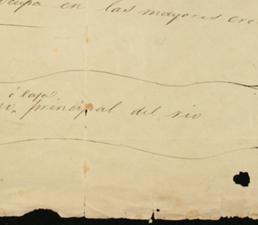 ocupa en las mayores cre
ó caja
principal del rio